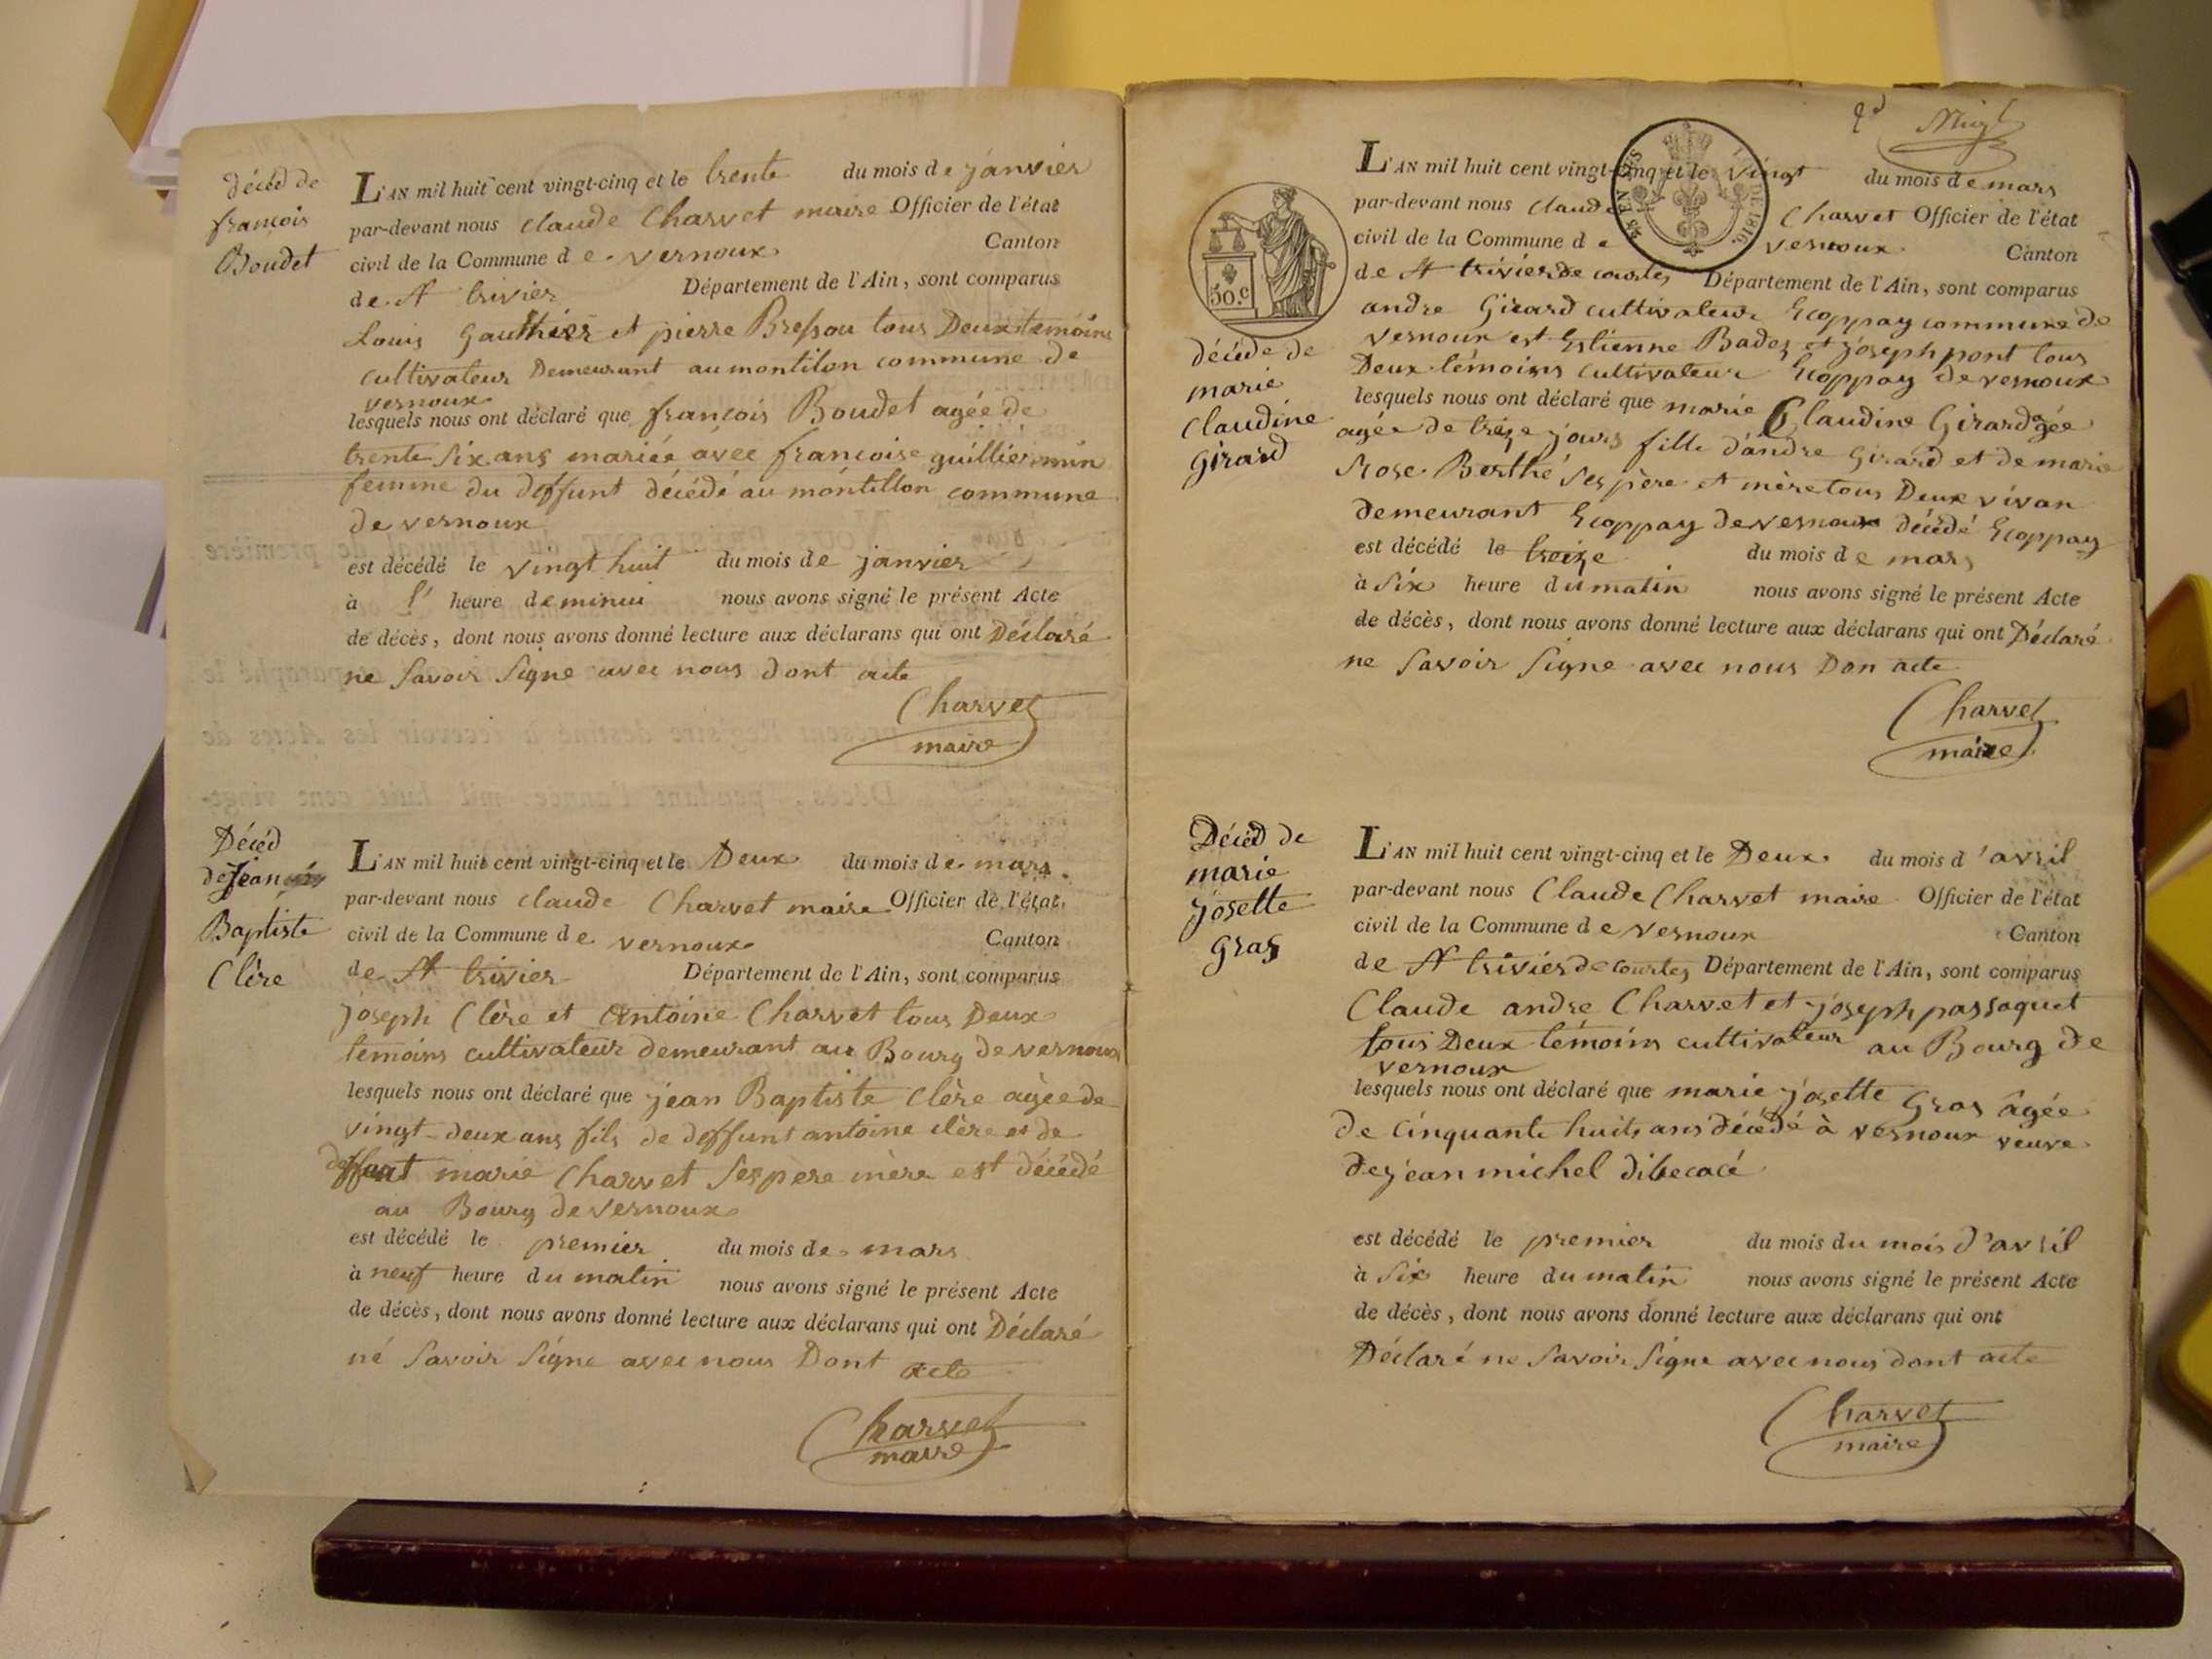 décéd de
françois
Boudet
L'AN mil huit cent vingt-cinq et le trente du mois de janvier
par-devant nous claude Charvet maire Officier de l'état
civil de la Commune de vernoux Canton
de St trivier Département de l'Ain, sont comparus
Louis Gauthier et pierre Bressou tous Deux témoins
cultivateur Demeurant au montilon commune de
vernoux
lesquels nous ont déclaré que françois Boudet agée de
trente six ans mariéé avec francoise guilliermin
femme du deffunt décédé au montillon commune
de vernoux
est décédé le vingt huit du mois de janvier
à l' heure de minui nous avons signé le présent Acte
de décès, dont nous avons donné lecture aux déclarans qui ont Déclaré
ne Savoir Signe avec nous dont acte
Charvet
maire
Décéd
de Jean
Baptiste
Clère
L'AN mil huit cent vingt-cinq et le Deux du mois de mars
par-devant nous claude Charvet maire Officier de l'état
civil de la Commune de vernoux Canton
de St trivier Département de l'Ain, sont comparus
joseph Clère et Antoine Charvet tous Deux
témoins cultivateur demeurant au Bourg de vernoux
lesquels nous ont déclaré que jean Baptiste Clère agée de
vingt-deux ans fils de deffunt antoine clère et de
deffunt marie Charvet Ses pere mère est décédé
au Bourg de vernoux
est décédé le premier du mois de mars
à neuf heure du matin nous avons signé le présent Acte
de décès, dont nous avons donné lecture aux déclarans qui ont Déclaré
né Savoir Signe avec nous Dont acte
Charvet
maire
2d
L'AN mil huit cent vingt-cinq et le Vingt du mois de mars
par-devant nous claude Charvet Officier de l'état
civil de la Commune de vernoux Canton
de St trivier de courtes Département de l'Ain, sont comparus
DE 1816.
50.c
andre Girard cultivateur Ecoppay commune de
vernoux est Estienne Badez et joseph pont tous
Deux témoins cultivateur Ecoppay de vernoux
décéde de
marie
Claudine
girard
lesquels nous ont déclaré que marie Claudine Girard gée
agée de treize jours fille d'andre Girard et de marie
Rose Berthé Ses père et mère tous Deux vivan
demeurant Ecoppay de vernoux décédé Ecoppay
est décédé le treize du mois de mars
à Six heure du matin nous avons signé le présent Acte
de décès, dont nous avons donné lecture aux déclarans qui ont Déclaré
ne Savoir Signe avec nous Don acte
Charvet
maire
Décéd de
marie
josette
gras
L'AN mil huit cent vingt-cinq et le Deux du mois d'avril
par-devant nous Claude Charvet maire Officier de l'état
civil de la Commune de vernoux Canton
de St trivier de courtes Département de l'Ain, sont comparus
Claude andre Charvet et joseph passaquet
tous Deux témoins cultivateur au Bourg de
vernoux
lesquels nous ont déclaré que marie josette Gras âgée
de Cinquante huit ans décédé à vernoux veuve
de jean michel dibecacé
est décédé le premier du mois du mois d'avril
à Six heure du matin nous avons signé le présent Acte
de décès, dont nous avons donné lecture aux déclarans qui ont
Déclaré ne Savoir Signe avec nous dont acte
Charvet
maire